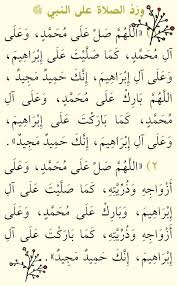 ورد الصلاة على النبي ﷺ
«اللَّهُمَّ صَلِّ عَلَى مُحَمَّدٍ، وَعَلَى
آلِ مُحَمَّدٍ، كَمَا صَلَّيْتَ عَلَى إِبْرَاهِيمَ،
وَعَلَى آلِ إِبْرَاهِيمَ، إِنَّكَ حَمِيدٌ مَجِيدٌ،
اللَّهُمَّ بَارِكْ عَلَى مُحَمَّدٍ، وَعَلَى آلِ
مُحَمَّدٍ، كَمَا بَارَكْتَ عَلَى إِبْرَاهِيمَ،
وَعَلَى آلِ إِبْرَاهِيمَ، إِنَّكَ حَمِيدٌ مَجِيدٌ».
٢) «اللَّهُمَّ صَلِّ عَلَى مُحَمَّدٍ، وَعَلَى
أَزْوَاجِهِ وَذُرِّيَّتِهِ، كَمَا صَلَّيْتَ عَلَى آلِ
إِبْرَاهِيمَ، وَبَارِكْ عَلَى مُحَمَّدٍ، وَعَلَى
أَزْوَاجِهِ وَذُرِّيَّتِهِ، كَمَا بَارَكْتَ عَلَى آلِ
إِبْرَاهِيمَ، إِنَّكَ حَمِيدٌ مَجِيدٌ».